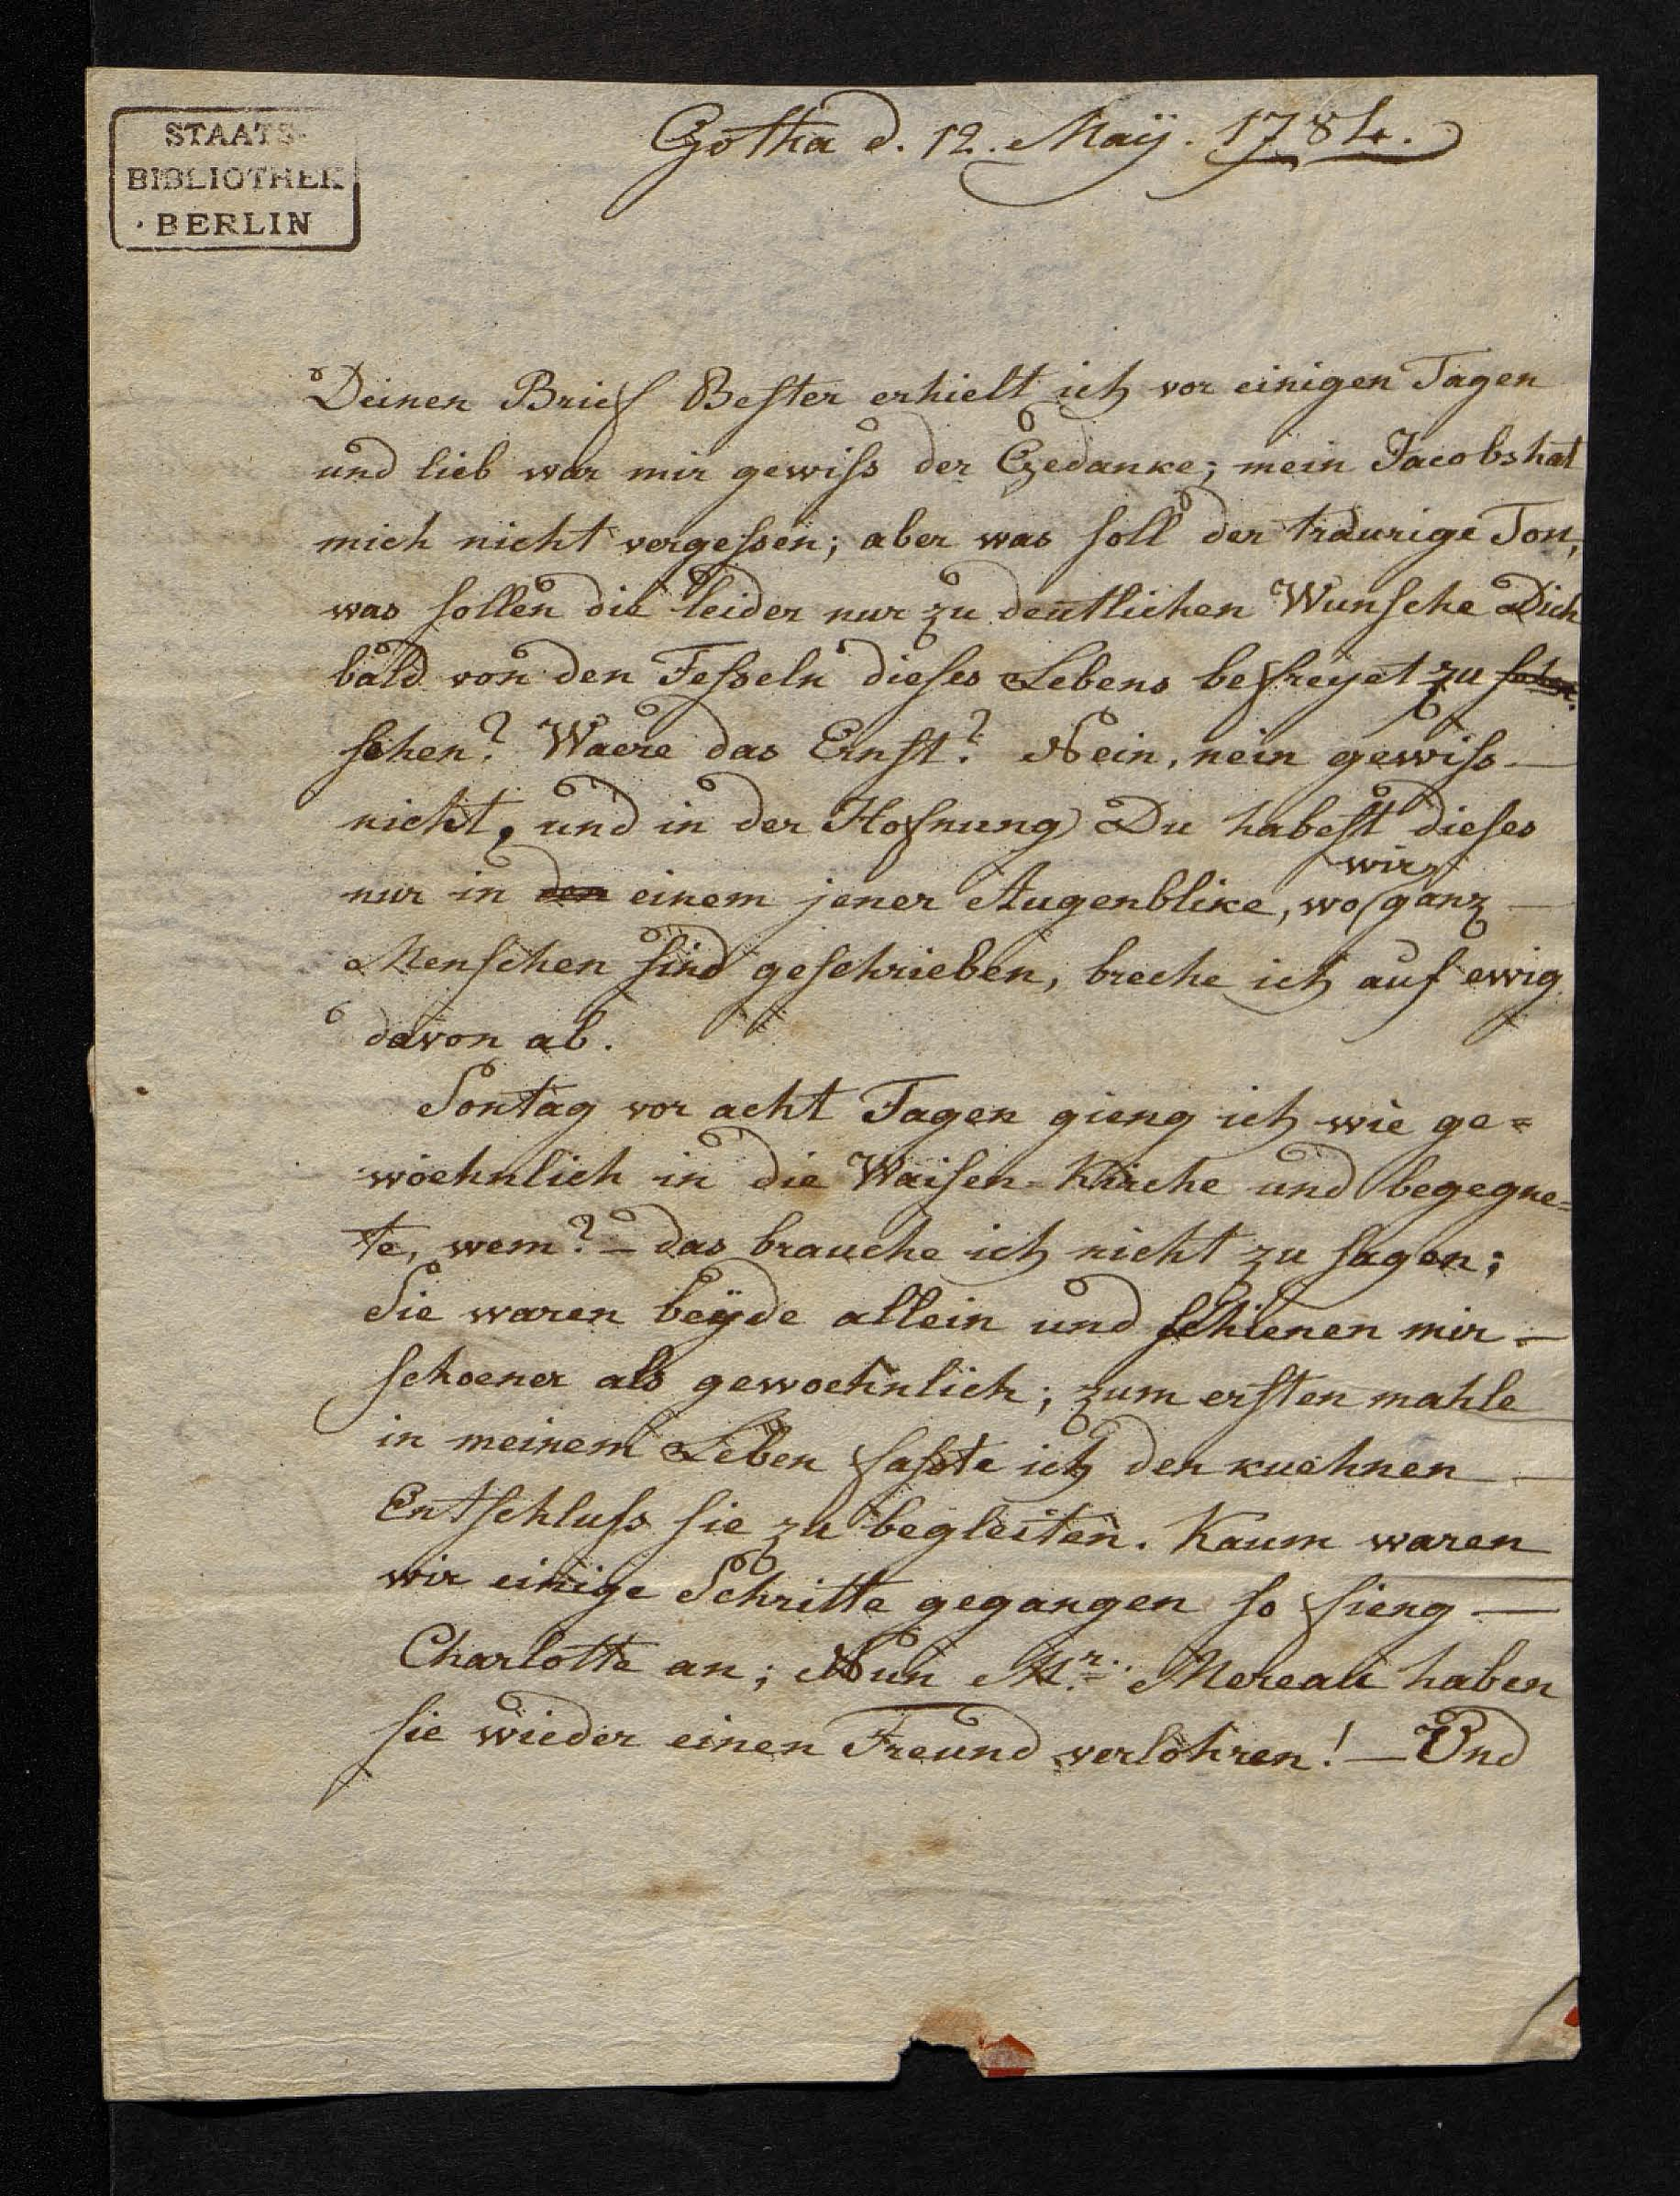 STAATS-
BIBLIOTHEK
BERLIN
Gotha d. 12. Maÿ. 1784.
Deinen Brief Bester erhielt ich vor einigen Tagen
und lieb war mir gewiſs der Gedanke; mein Jacobs hat
mich nicht vergeſsen; aber was ſoll der traurige Ton,
was ſollen die leider nur zu deutlichen Wunſche Dich
bald von den Feſseln dieſes Lebens befreyet zu
ſehen? Waere das Ernſt? Nein, nein gewiſs —
nicht, und in der Hofnung Du habeſt dieſes
wir
nur in den einem jener Augenblike, wo ganz —
Menſchen ſind geſchrieben, breche ich auf ewig
davon ab.
Sontag vor acht Tagen gieng ich wie ge=
woehnlich in die Waiſen-Kirche und begegne=
te, wem? — das brauche ich nicht zu ſagen;
Sie waren beÿde allein und ſchienen mir —
ſchoener als gewoehnlich; zum erſten mahle
in meinem Leben faſste ich den kuehnen —
Entſchluſs ſie zu begleiten. Kaum waren
wir einige Schritte gegangen ſo fieng —
Charlotte an; Nun Mr. Mereau haben
ſie wieder einen Freund verlohren! — Und